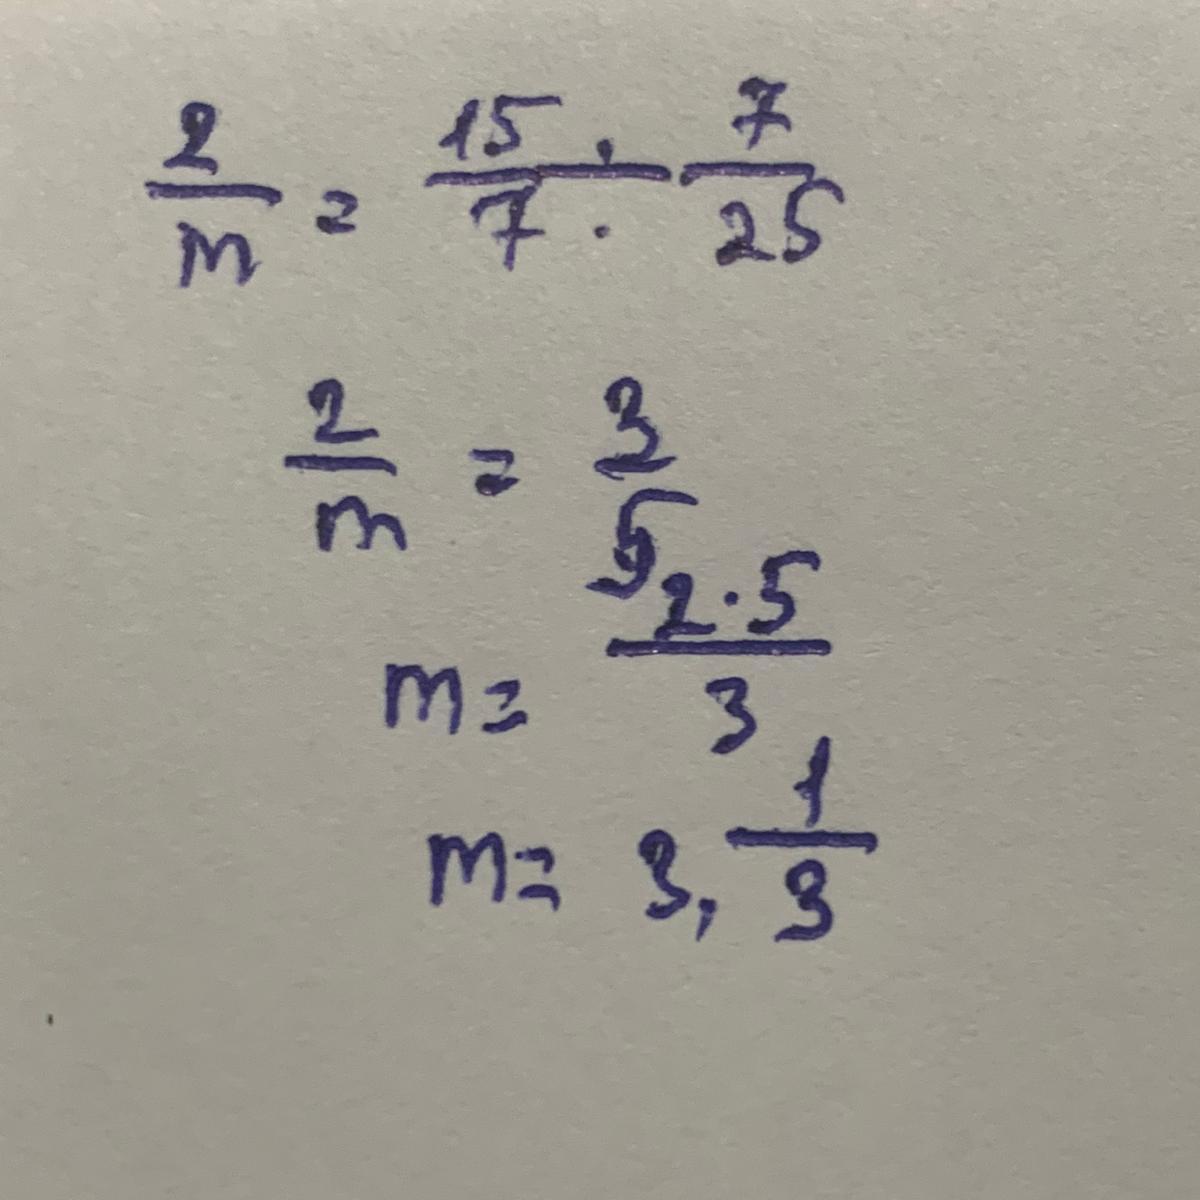 2/m = 15/7 ÷ 7/25
2/m = 3/5
m = 2·5/3
m = 3, 1/3